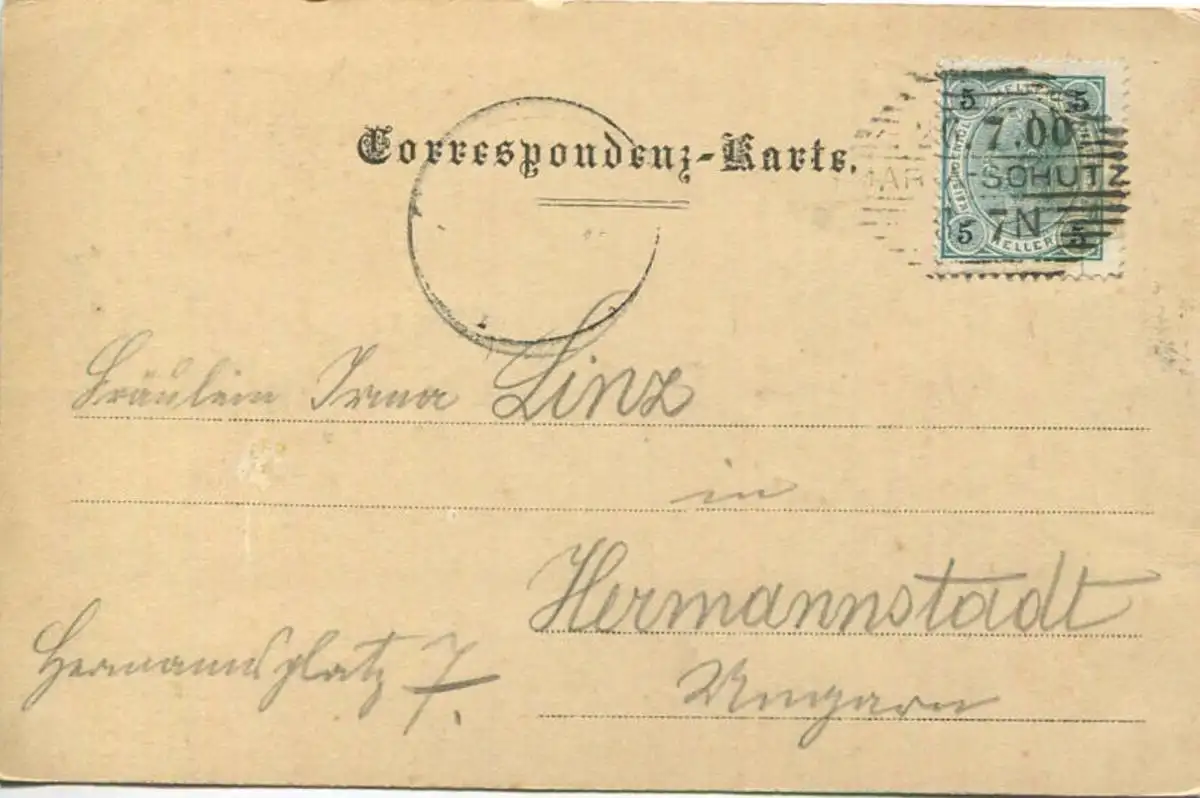 Correspondenz-Karte.
5 5
7.00
MARIA-SCHUTZ
7N
5 HELLER 5
Fräulein Irma Linz
in
Hermannstadt
Hermannsplatz 7.
Ungarn